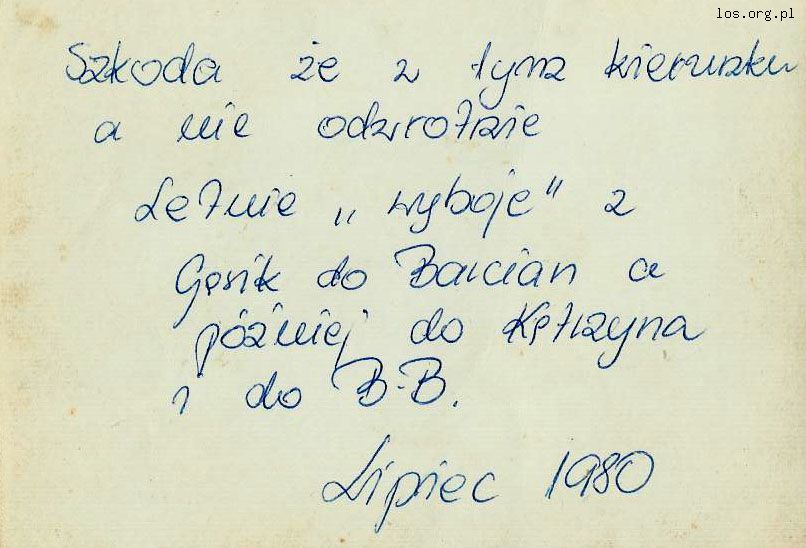 los.org.pl
Szkoda że z tym kierunku
a nie odwrotnie
Letnie „wyboje" z
Gęsik do Barcian a
później do Kętrzyna
i do B-B.
Lipiec 1980